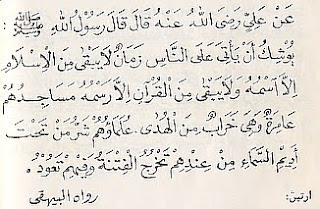 عَنْ عَلِيٍّ رَضِىَ اللهُ عَنْهُ قَالَ قَالَ رَسُوْلُ اللهِ ﷺ
يُوْشِكُ أَنْ يَأْتَىَ عَلَى النَّاسِ زَمَانٌ لَايَبْقَى مِنَ الْإِسْلَامِ
اِلَّا اسْمُهُ وَلَايَبْقَى مِنَ الْقُرْآنِ اِلَّا رَسْمُهُ مَسَاجِدُهُمْ
عَامِرَةٌ وَهِىَ خَرَابٌ مِنَ الْهُدَى. عُلَمَاؤُهُمْ شَرُّ مَنْ تَحْتَ
أَدِيْمِ السَّمَاءِ مِنْ عِنْدِهِمْ تَخْرُجُ الْفِتْنَةُ وَفِيْهِمْ تَعُوْدُ.
رواه البيهقى
ارتيڽ: